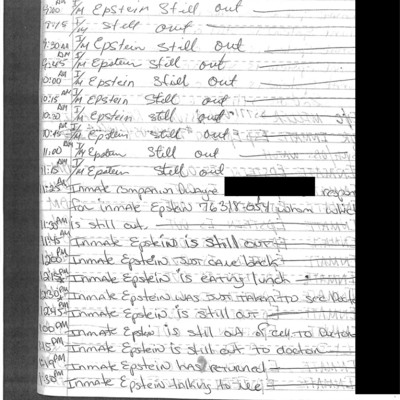 9:00 AM I/M Epstein Still out
9:15 I/M Still out
9:30 AM I/M Epstein Still out
9:45 I/M Epstein Still out
10:00 AM I/M Epstein Still out
10:15 AM I/M Epstein Still out
10:30 AM I/M Epstein Still out
10:45 AM I/M Epstein Still out
11:00 AM I/M Epstein Still out
11:15 AM I/M Epstein Still out
11:25 AM Inmate Companion Dwayne
For inmate Epstein 76318-054 whom
11:30 AM is still out.
11:45 AM Inmate Epstein is still out
12:00 PM Inmate Epstein just came back
12:15 PM Inmate Epstein is eating lunch
12:30 PM Inmate Epstein was just taken to see
12:45 PM Inmate Epstein is still out
1:00 PM Inmate Epstein is still out of cell to
1:15 PM Inmate Epstein is still out to doctor
1:19 PM Inmate Epstein has returned
1:30 PM Inmate Epstein talking to me